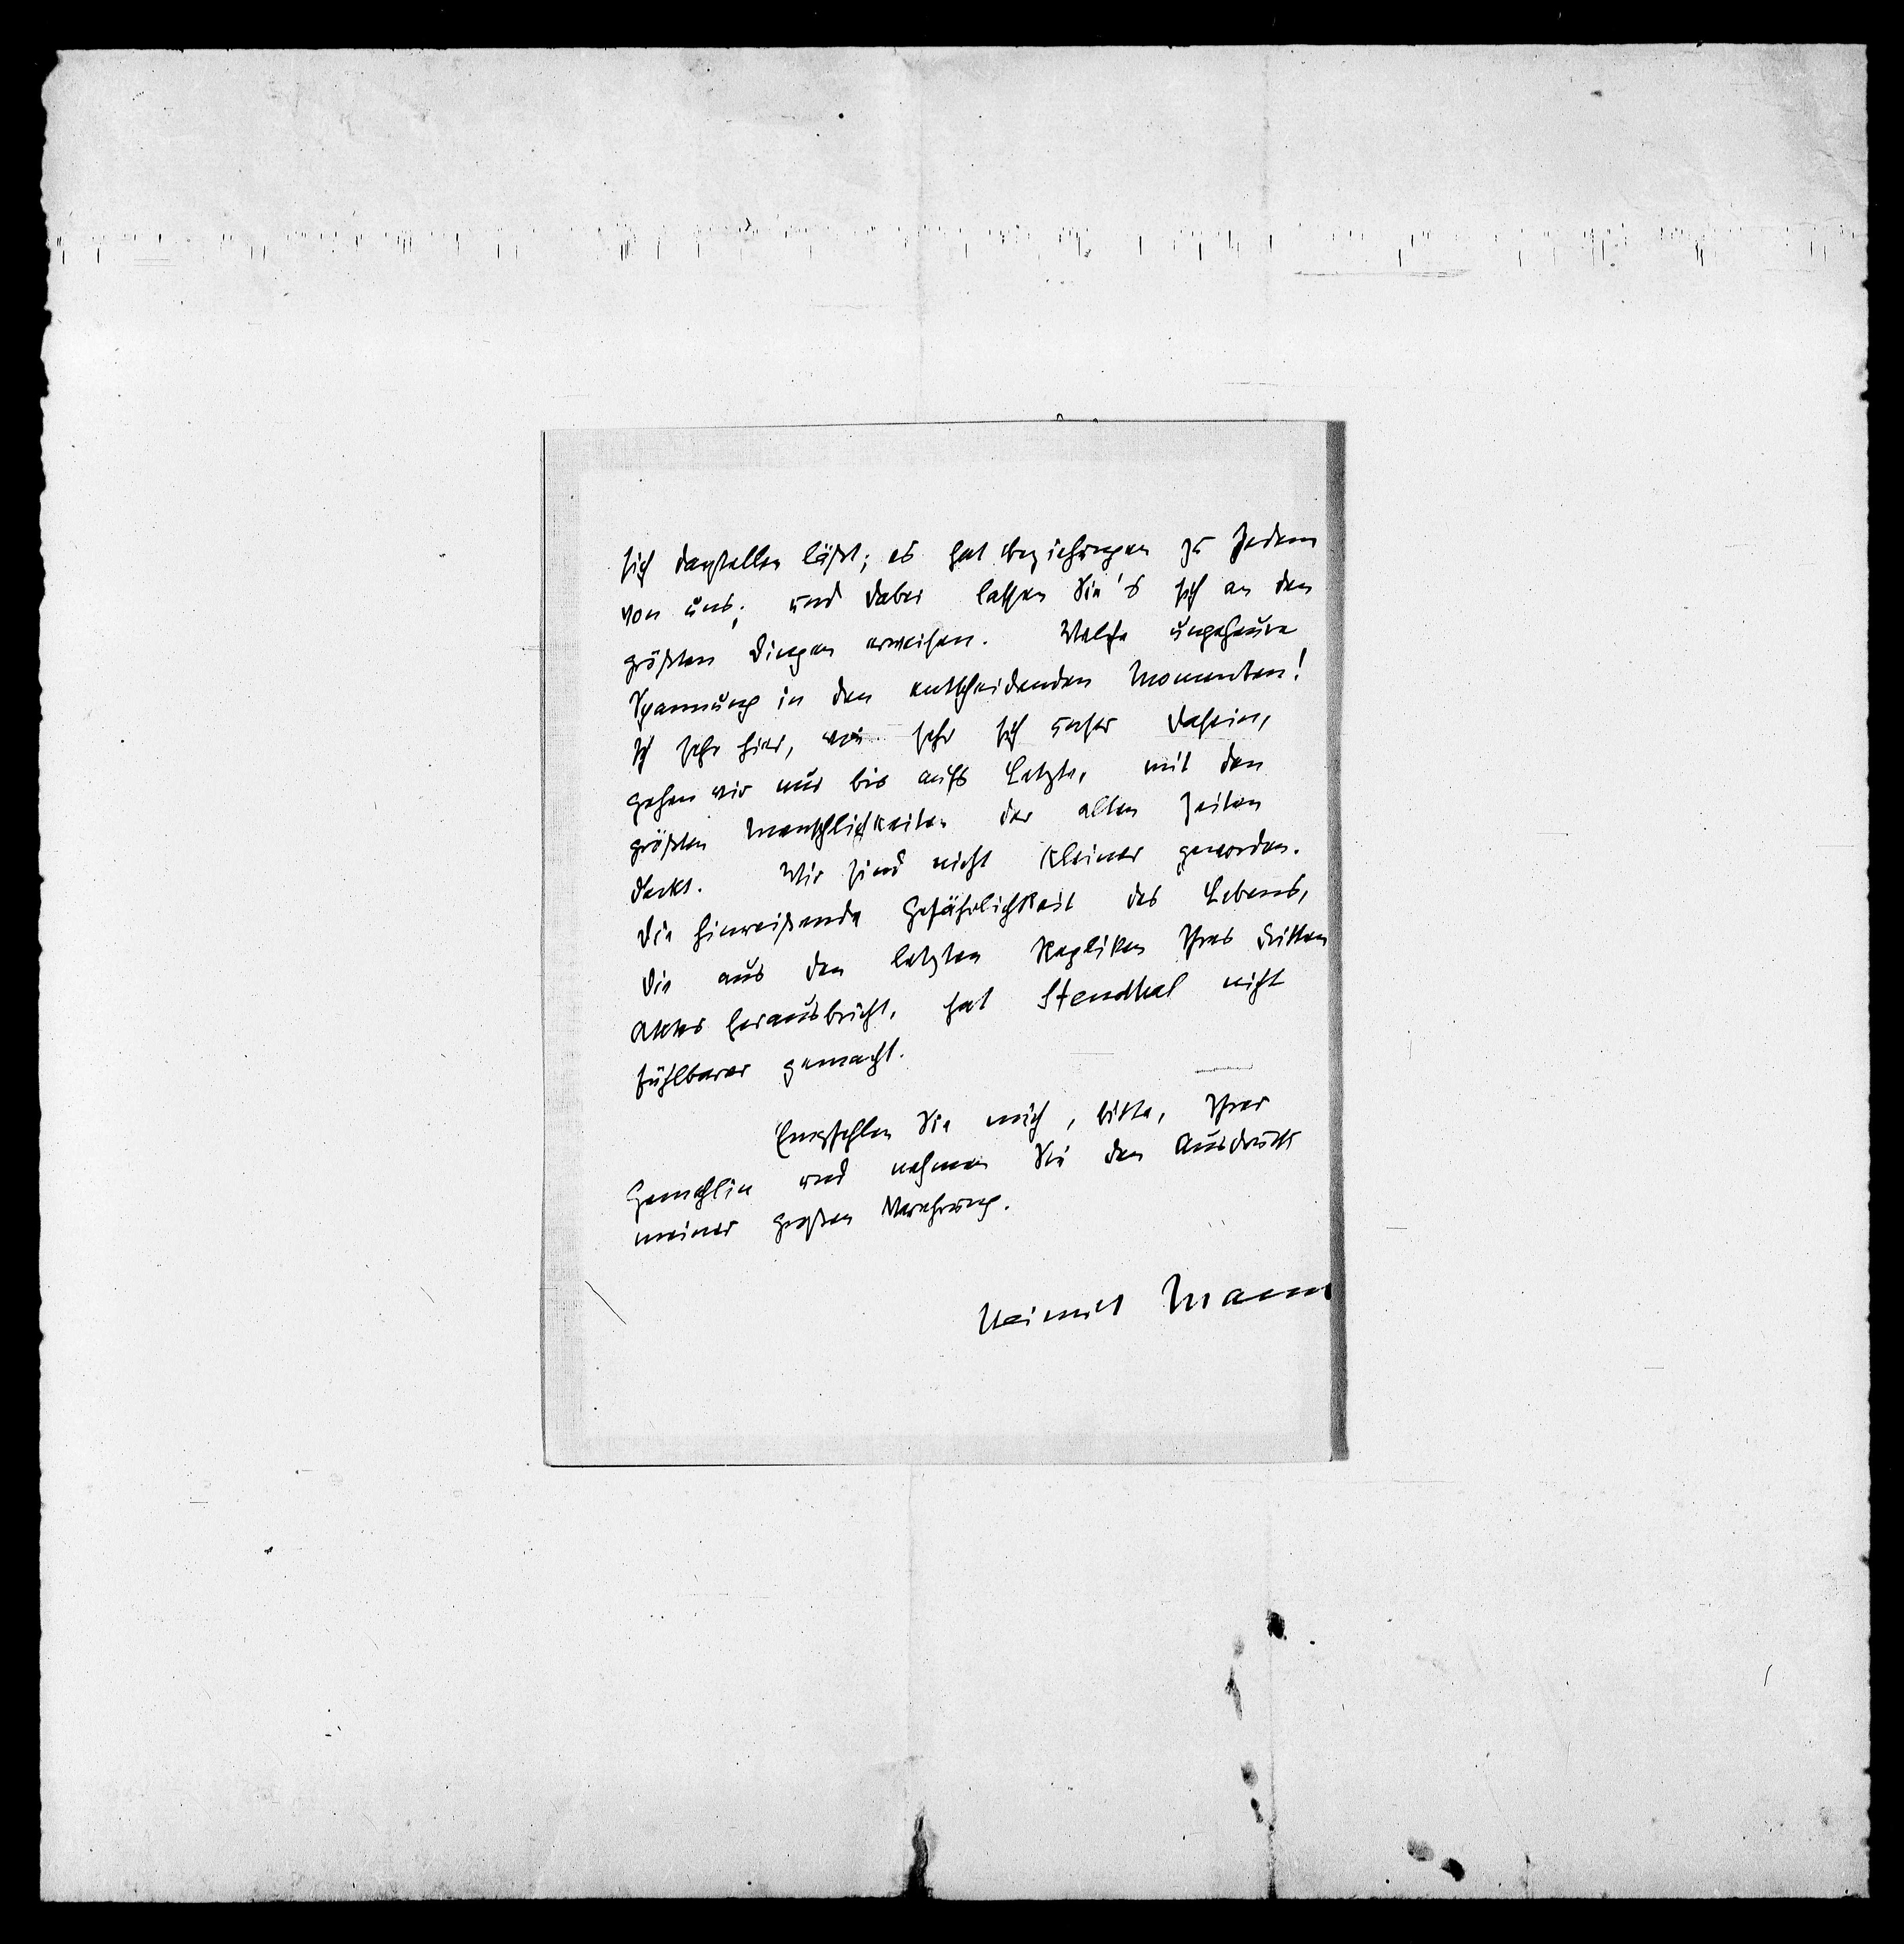 sich darstellen läßt; es hat Beziehungen zu Jedem
von uns; und dabei lassen Sie's sich an den
größten Dingen erweisen. Welche ungeheure
Spannung in den entscheidenden Momenten!
Ich sehe hier, wie sehr sich unser Dasein,
gehen wir nur bis aufs Letzte, mit den
größten Menschlichkeiten der alten Zeiten
deckt. Wir sind nicht kleiner geworden.
Die hinreißende Gefährlichkeit des Lebens,
die aus den letzten Repliken Ihres dritten
Aktes herausbricht, hat Stendhal nicht
fühlbarer gemacht.
Empfehlen Sie mich, bitte, Ihrer
Gemahlin und nehmen Sie den Ausdruck
meiner großen Verehrung.
Heinrich Mann